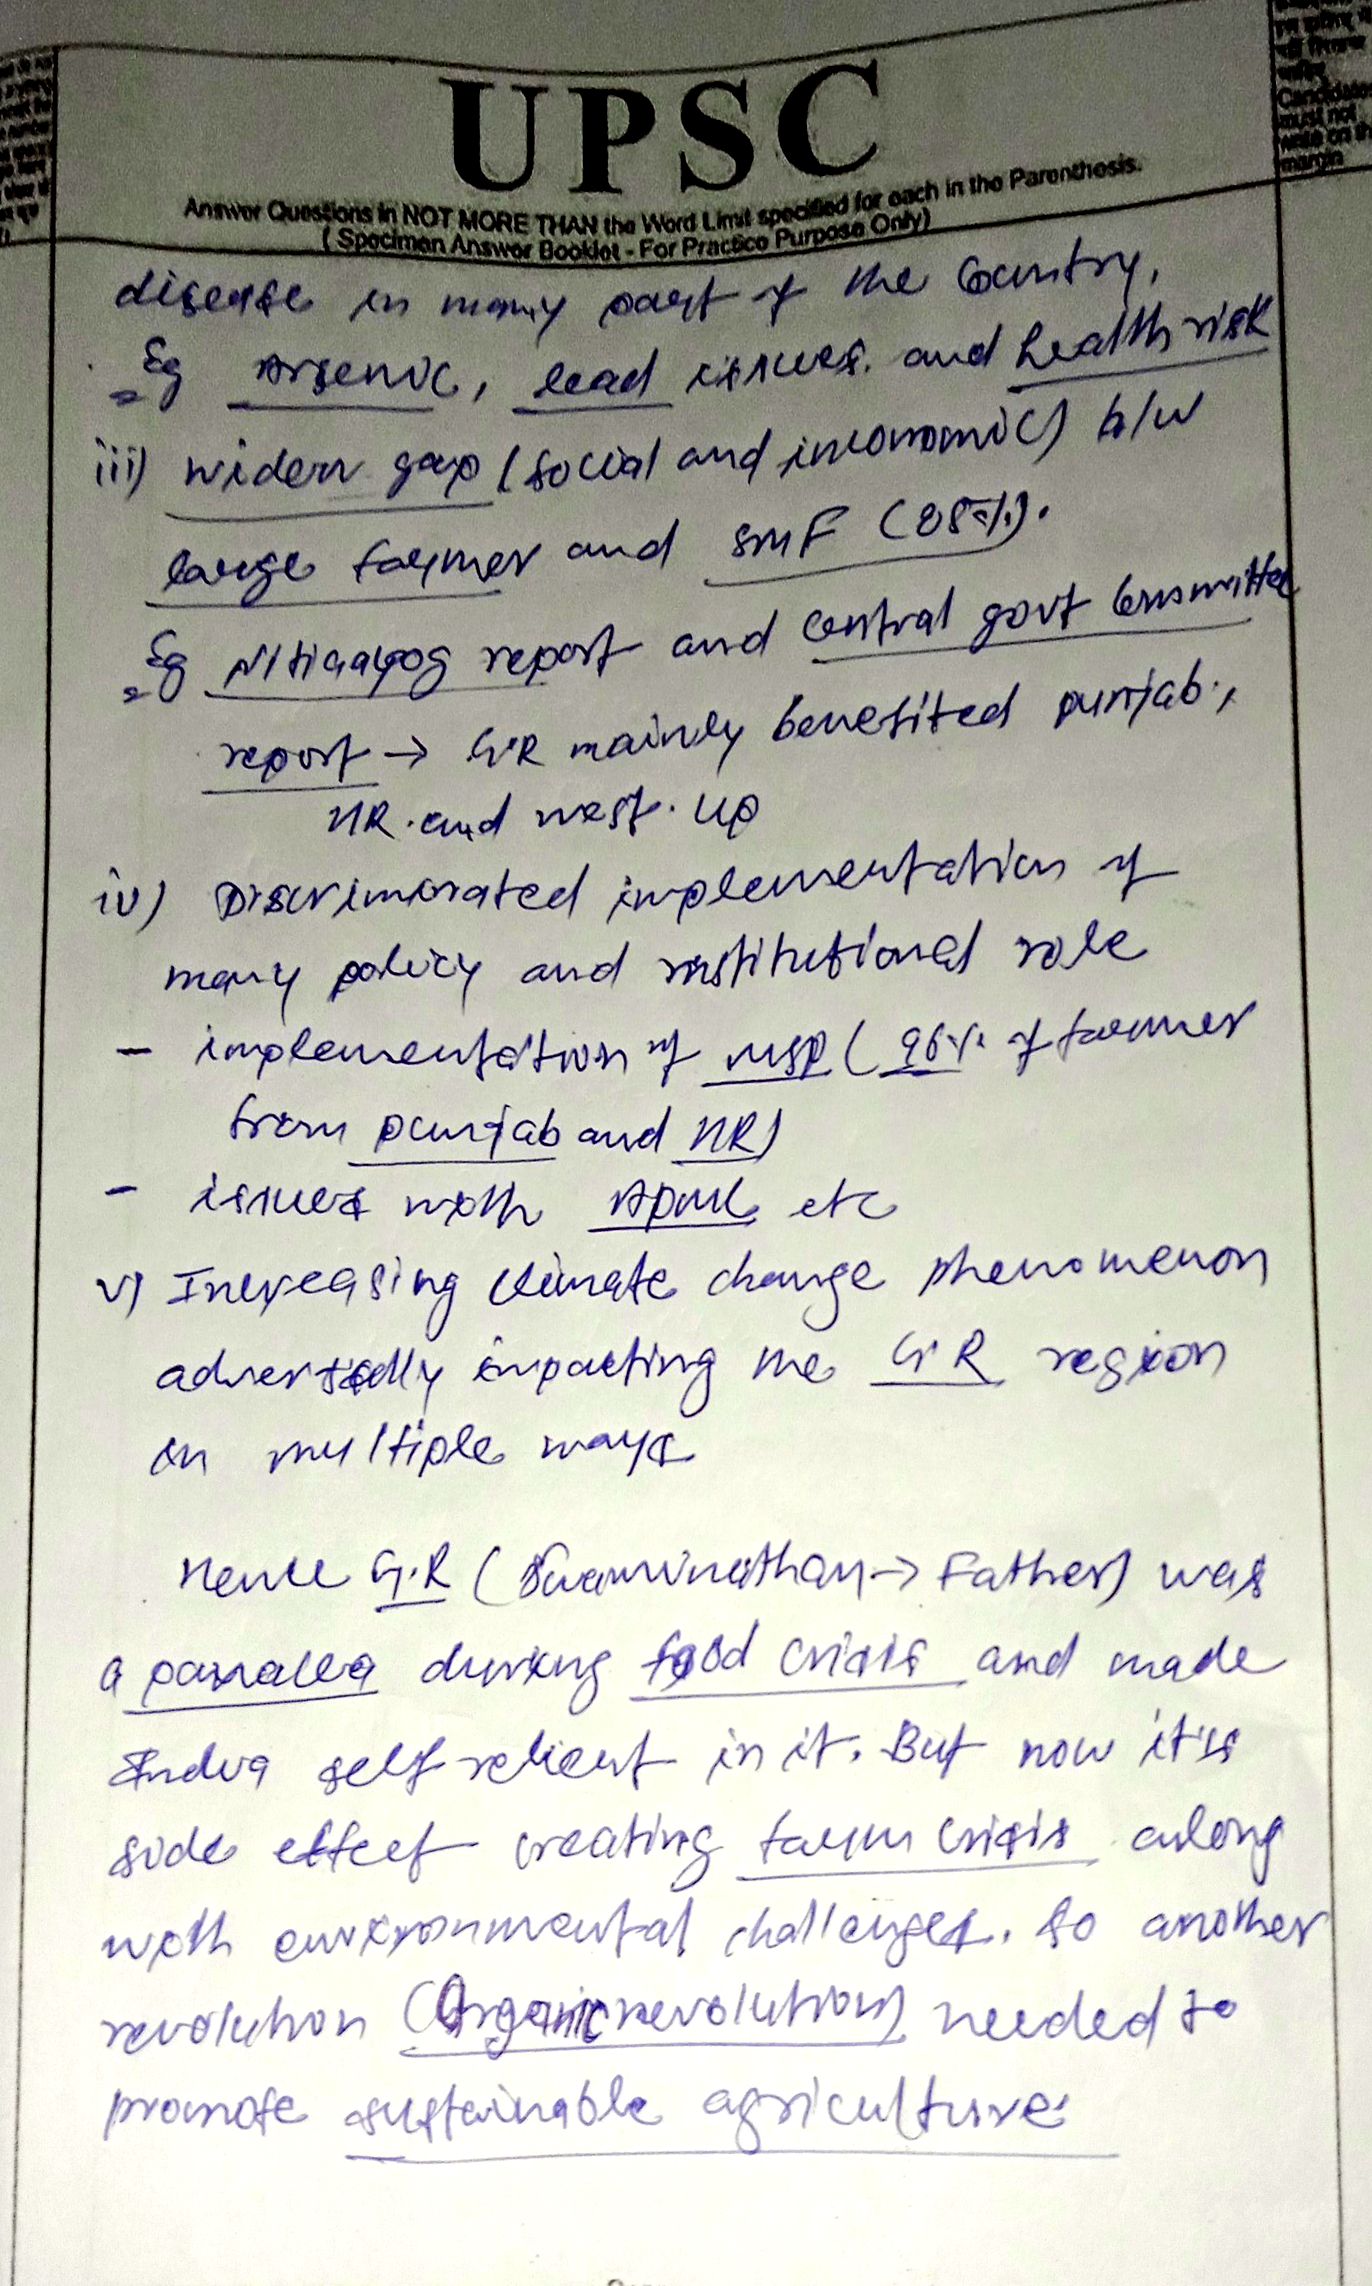 UPSC
Answer Questions in NOT MORE THAN the Word Limit specified for each in the Parenthesis.
( Specimen Answer Booklet - For Practice Purpose Only)
Candidates
must not
write on
margin
disease in many part of the country,
Eg Arsenic, lead issues. and health risk
iii) widern gap (social and inconomic) b/w
large farmer and SMF (85%).
Eg Nitiaayog report and central govt committee
report → G.R mainly benefited punjab,
HR. and west. up
iv) Discriminated implementation of
many policy and institutional role
- implementation of MSP ( 96% of farmer
from punjab and HR)
- issues with APMC etc
v) Increasing climate change phenomenon
adversly impacting the G.R region
in multiple ways
Hence G.R ( Swaminathan → Father) was
a during food crisis and made
India self relient in it. But now it's
side effect creating farm crisis along
with environmental challenges. So another
revolution (Organic revolution) needed to
promote sustainable agriculture